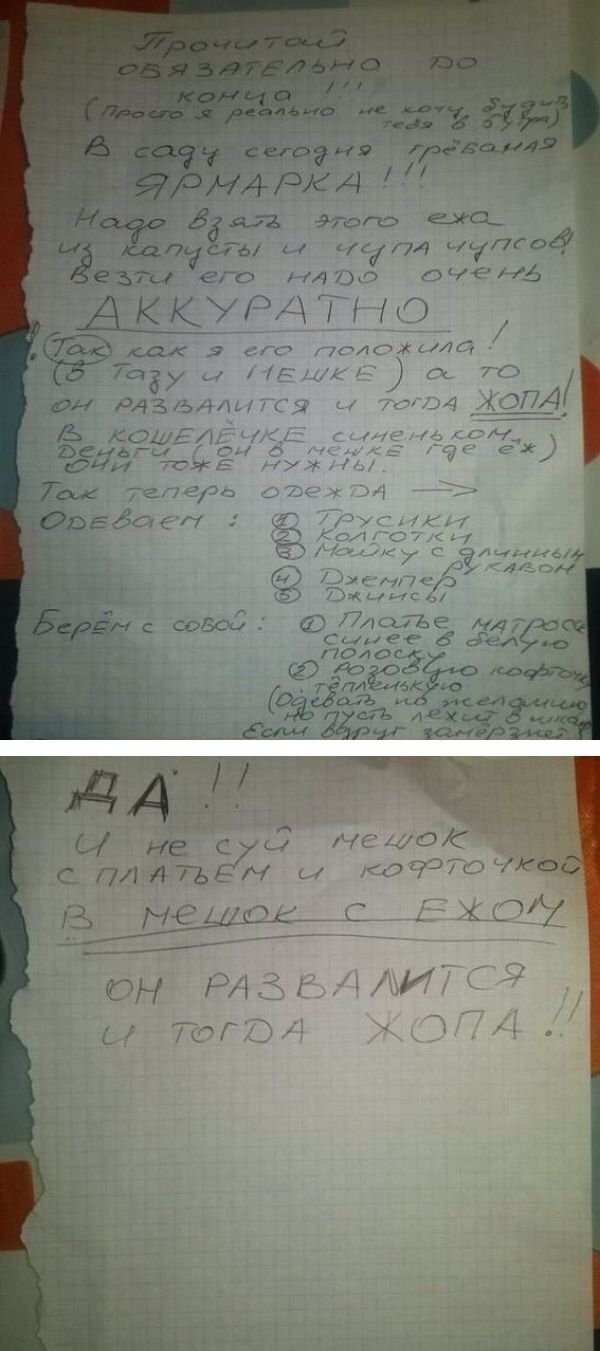 Прочитай
ОБЯЗАТЕЛЬНО ДО
конца!!!
(Просто я реально не хочу будить
тебя в 5 утра)
В саду сегодня грёбаная
ЯРМАРКА!!!
Надо взять этого ежа
из капусты и чупа чупсов!
Везти его НАДО очень
АККУРАТНО
! Так как я его положила!
(В Тазу и МЕШКЕ) а то
он РАЗВАЛИТСЯ и тогда ЖОПА!
В КОШЕЛЁЧКЕ синеньком
Деньги (он в мешке где ёж)
Они тоже нужны.
Так теперь одежда →
Одеваем: ① Трусики
② Колготки
③ Майку с длинным
рукавом
④ Джемпер
⑤ Джинсы
Берём с собой: ① Платье матроск
синее в белую
полоску
② Розовую кофточку
тёпленькую
(Одевать по желанию
но пусть лежит в шкаф
Если вдруг замёрзнет)
ДА!!
И не суй мешок
с платьем и кофточкой
В МЕШОК С ЕЖОМ
ОН РАЗВАЛИТСЯ
И ТОГДА ЖОПА!!